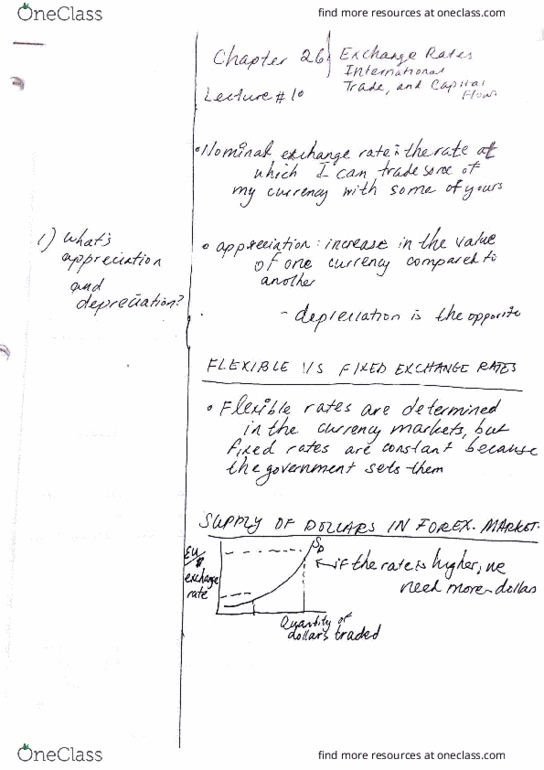 OneClass
find more resources at oneclass.com
Chapter 26
Exchange Rates
International
Trade, and Capital
Flows
Lecture #10
• Nominal exchange rate: the rate at
which I can trade some of
my currency with some of yours
1) What's
appreciation
and
depreciation?
• appreciation: increase in the value
of one currency compared to
another
- depreciation is the opposite
FLEXIBLE V/S FIXED EXCHANGE RATES
• Flexible rates are determined
in the currency markets, but
fixed rates are constant because
the government sets them
SUPPLY OF DOLLARS IN FOREX. MARKET.
EU/$
exchange
rate
SD
if the rate is higher, we
need more dollars
Quantity of
dollars traded
OneClass
find more resources at oneclass.com